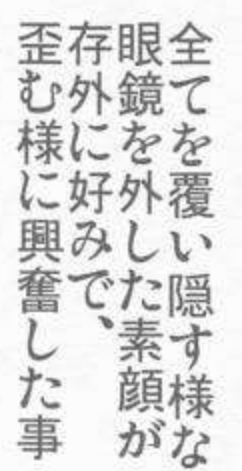 全てを覆い隠す様な
眼鏡を外した素顔が
存外に好みで、
歪む様に興奮した事